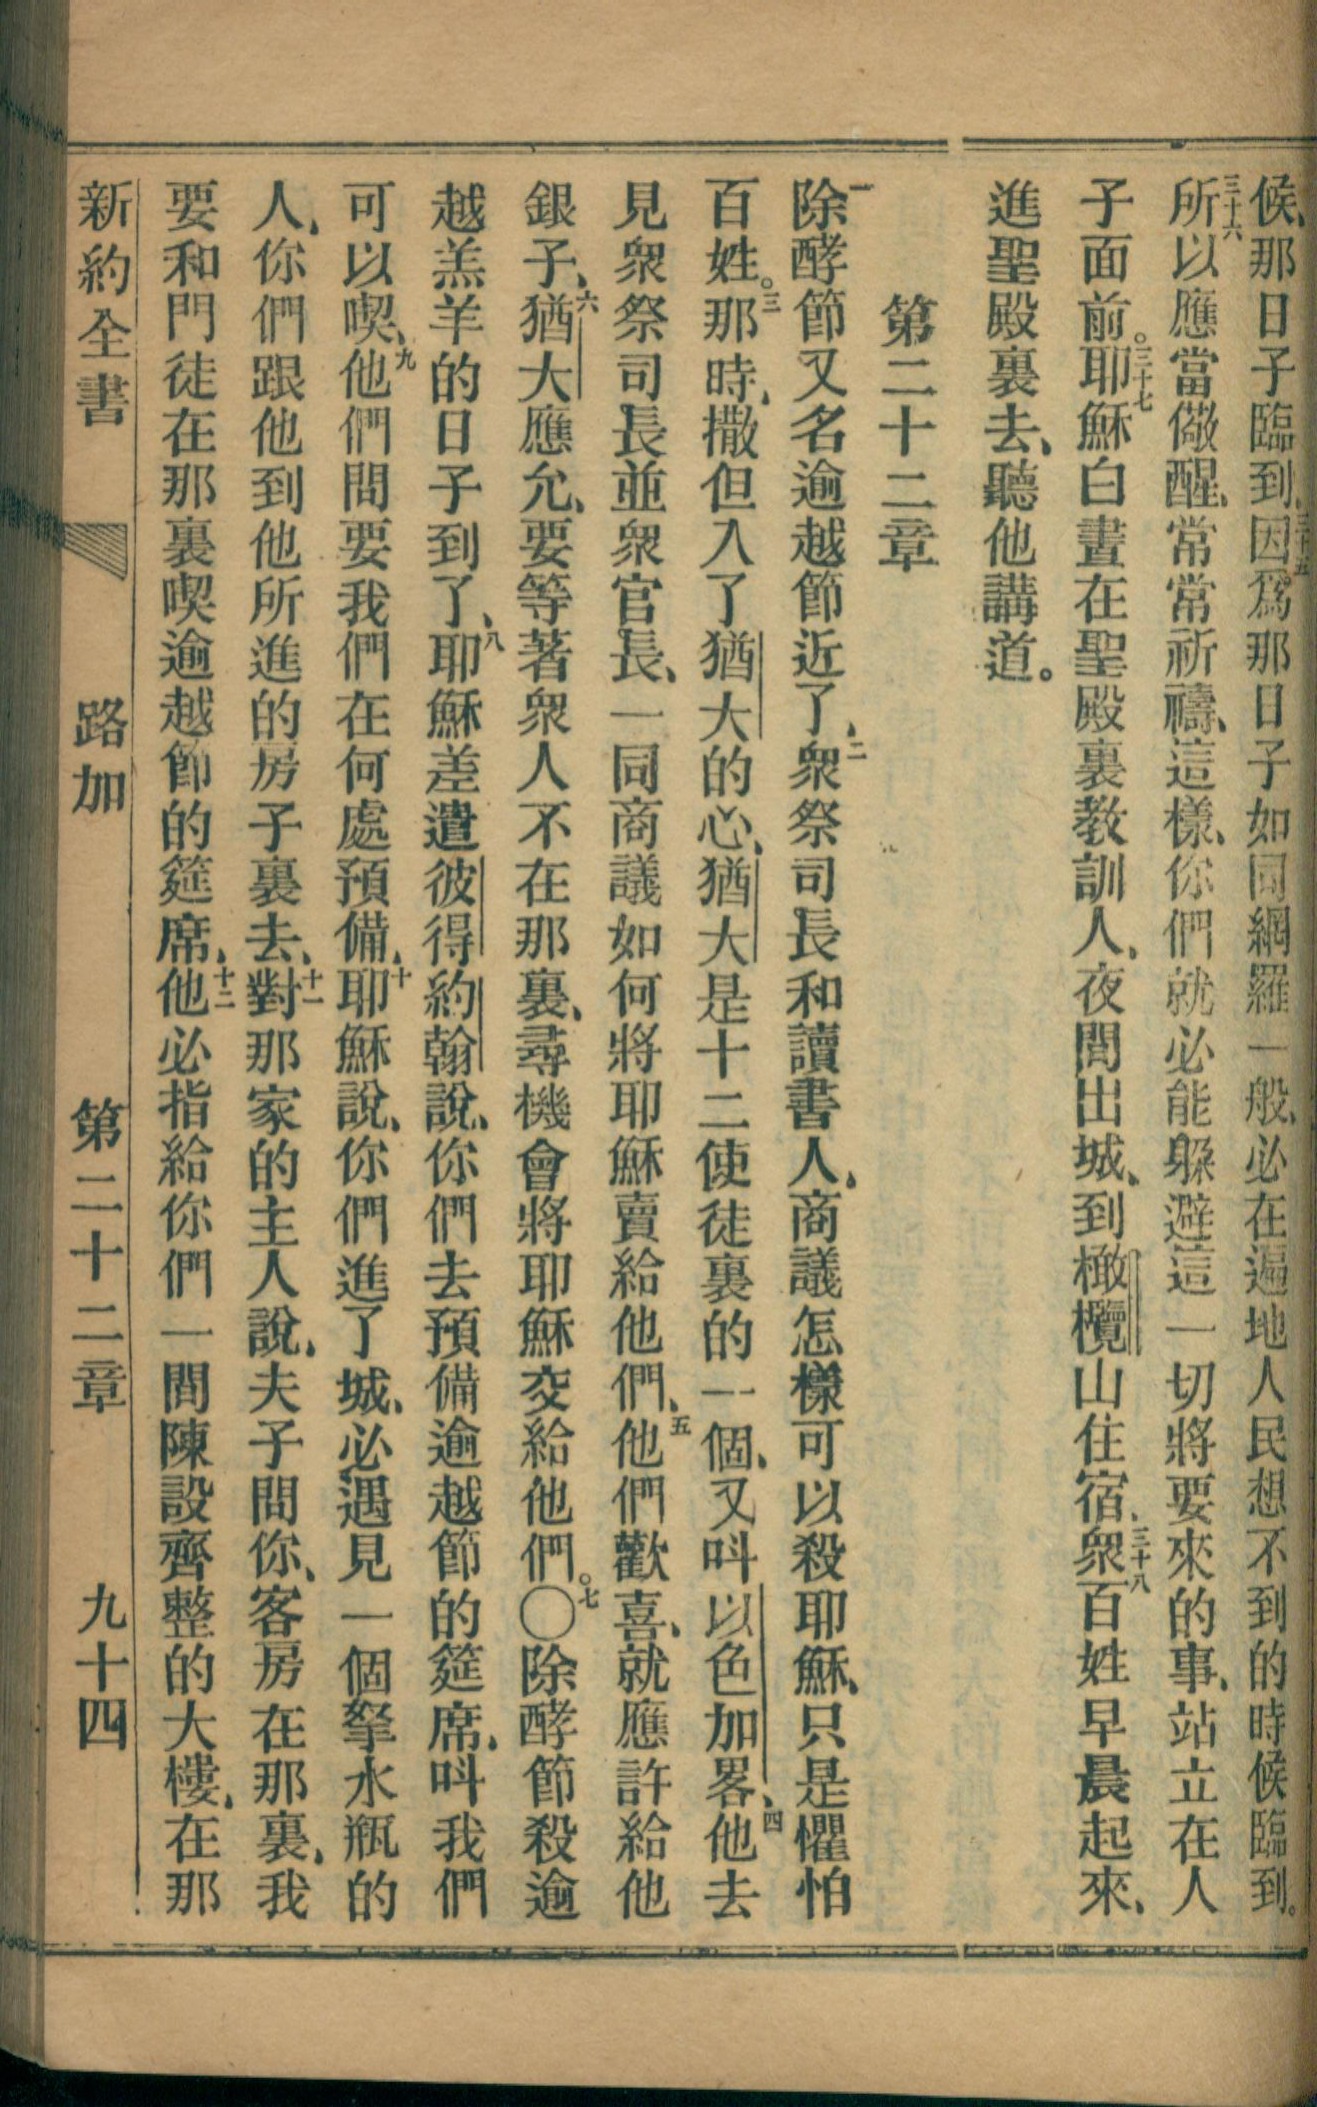 候、那日子臨到、三十五因爲那日子如同網羅一般、必在遍地人民想不到的時候臨到。
三十六所以應當儆醒、常常祈禱、這樣、你們就必能躱避這一切將要來的事、站立在人
子面前。三十七耶穌白晝在聖殿裏教訓人、夜間出城、到橄欖山住宿、三十八衆百姓早晨起來、
進聖殿裏去、聽他講道。
第二十二章
一除酵節又名逾越節近了、二衆祭司長和讀書人、商議怎樣可以殺耶穌、只是懼怕
百姓。三那時、撒但入了猶大的心、猶大是十二使徒裏的一個、又呌以色加畧、四他去
見衆祭司長並衆官長、一同商議如何將耶穌賣給他們、五他們歡喜、就應許給他
銀子、六猶大應允、要等著衆人不在那裏、尋機會將耶穌交給他們。七〇除酵節殺逾
越羔羊的日子到了、八耶穌差遣彼得約翰說、你們去預備逾越節的筵席、呌我們
可以喫、九他們問要我們在何處預備、十耶穌說、你們進了城、必遇見一個拏水瓶的
人、你們跟他到他所進的房子裏去、十一對那家的主人說、夫子問你、客房在那裏、我
要和門徒在那裏喫逾越節的筵席、十二他必指給你們一間陳設齊整的大樓、在那
新約全書 路加 第二十二章 九十四